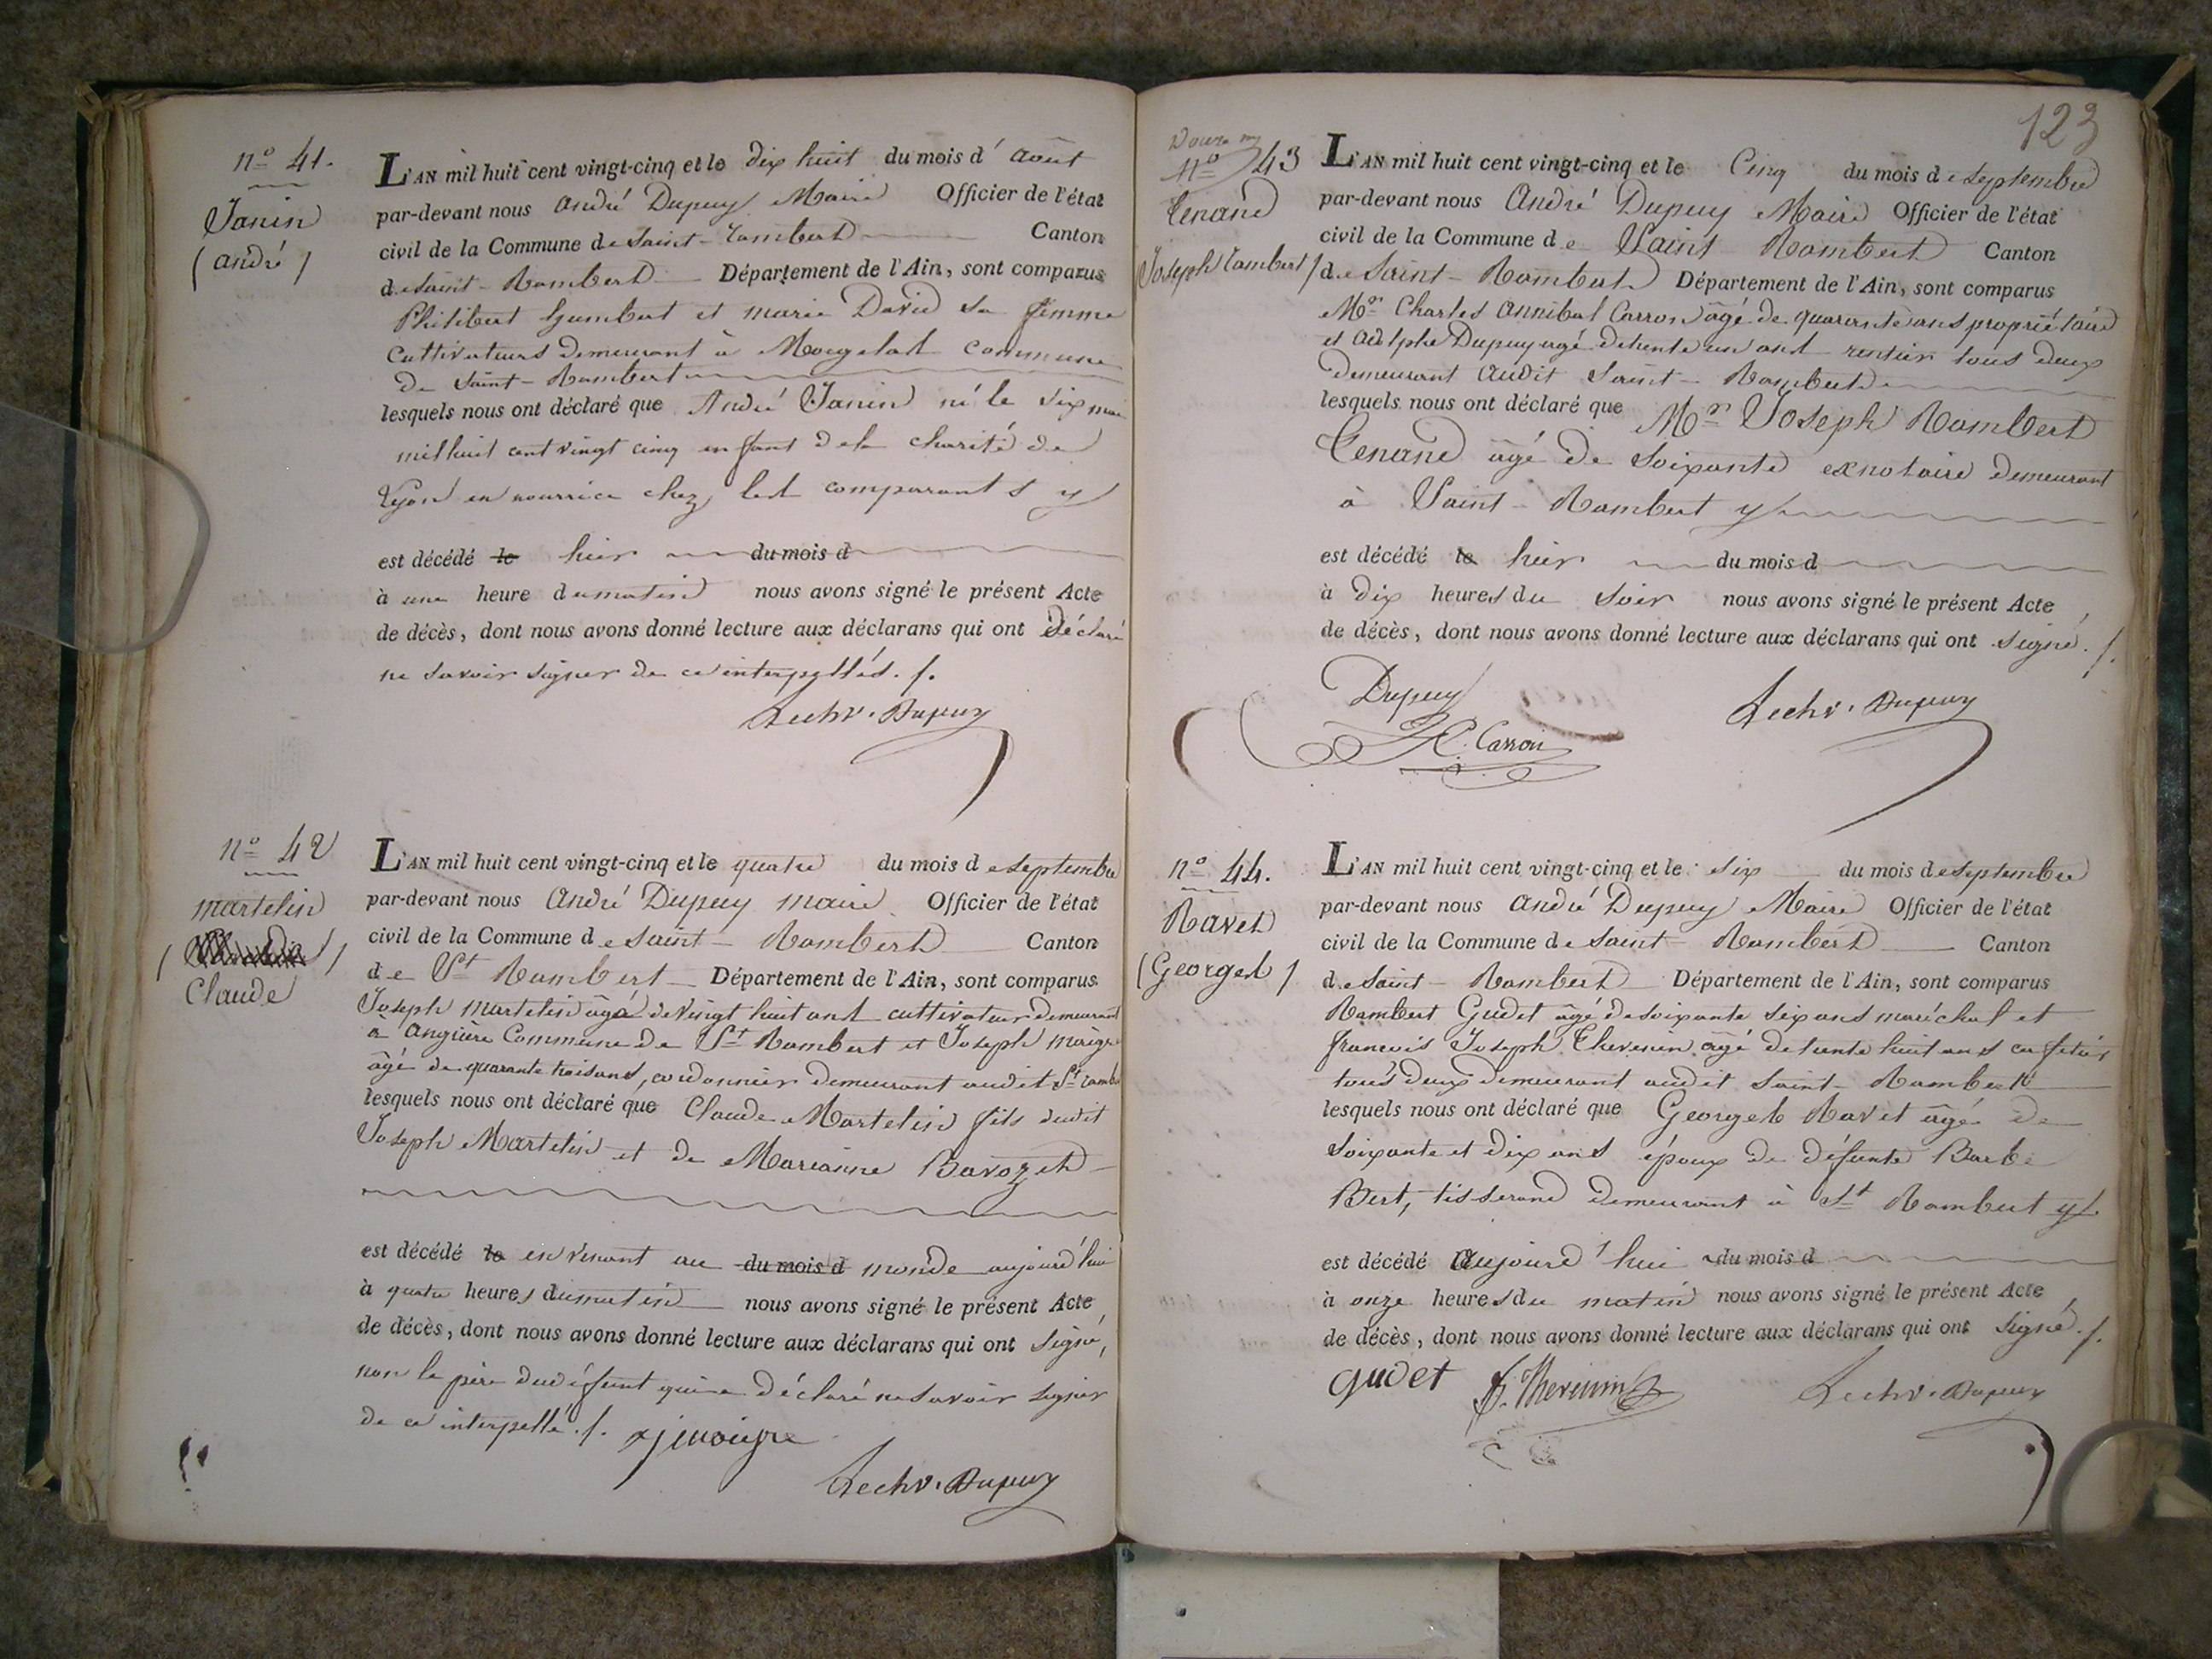 nº 41.
Janin
(andré)
L'AN mil huit cent vingt-cinq et le dix huit du mois d' août
par-devant nous André Dupuy Maire Officier de l'état
civil de la Commune de Saint-rambert Canton
de saint-Rambert Département de l'Ain, sont comparus
Philibert Gumbert et marie David sa femme
cultivateurs demeurant à Morgelat commune
de Saint-Rambert
lesquels nous ont déclaré que André Janin né le six mai
mil huit cent vingt cinq enfant de la charité de
Lyon en nourrice chez les comparants y
est décédé le hier du mois d
à une heure du matin nous avons signé le présent Acte
de décès, dont nous avons donné lecture aux déclarans qui ont déclaré
ne savoir signer de ce interpellés ./.
Lechv. Dupuy
nº 42
martelin
Claude
L'AN mil huit cent vingt-cinq et le quatre du mois de septembre
par-devant nous André Dupuy maire Officier de l'état
civil de la Commune de saint-Rambert Canton
de St Rambert Département de l'Ain, sont comparus
Joseph Martelin âgé de vingt huit ans cultivateur demeurant
à angrière Commune de St Rambert et Joseph maigre
âgé de quarante trois ans, cordonnier demeurant audit St ramb
lesquels nous ont déclaré que Claude Martelin fils dudit
Joseph Martelin et de Marianne Bavozet
est décédé le en venant au du mois d monde aujourd'hui
à quatre heures du matin nous avons signé le présent Acte
de décès, dont nous avons donné lecture aux déclarans qui ont signé,
non le père du défunt qui a déclaré ne savoir signer
de ce interpellé ./. jmaigre
Lechv. Dupuy
123
nº 43
Tenand
(Joseph rambert)
L'AN mil huit cent vingt-cinq et le Cinq du mois de septembre
par-devant nous André Dupuy Maire Officier de l'état
civil de la Commune de Saint Rambert Canton
de Saint-Rambert Département de l'Ain, sont comparus
Mr Charles Annibal Carron âgé de quarante ans propriétaire
et Adelphe Dupuy agé de trente un ans rentier tous deux
demeurant audit Saint-Rambert
lesquels nous ont déclaré que Mr Joseph Rambert
Tenand âgé de soixante exnotaire demeurant
à Saint-Rambert y
est décédé le hier du mois d
à dix heures du soir nous avons signé le présent Acte
de décès, dont nous avons donné lecture aux déclarans qui ont signé ./.
Dupuy
Lechv. Dupuy
C. Carron
nº 44.
Ravet
(Georges)
L'AN mil huit cent vingt-cinq et le six du mois de septembre
par-devant nous André Dupuy Maire Officier de l'état
civil de la Commune de Saint-Rambert Canton
de Saint-Rambert Département de l'Ain, sont comparus
Rambert Gudet âgé de soixante six ans maréchal et
françois Joseph Thevenin âgé de trente huit ans cafetier
tous deux demeurant audit Saint-Rambert
lesquels nous ont déclaré que Georges Ravet âgé de
soixante et dix ans époux de défunte Barbe
Bert, tisserand demeurant à St Rambert y
est décédé aujourd'hui du mois d
à onze heures du matin nous avons signé le présent Acte
de décès, dont nous avons donné lecture aux déclarans qui ont signé ./.
gudet f. Thevenin Lechv. Dupuy